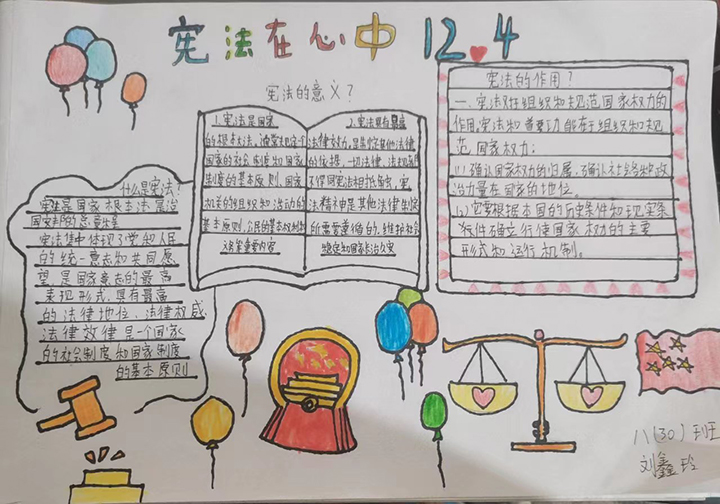 宪法在心中 12.4
什么是宪法?
宪法集中体现了党和人民
的统一意志和共同愿
望,是国家意志的最高
表现形式,具有最高
的法律地位、法律权威
法律效律是一个国家
的社会制度和国家制度
的基本原则
宪法的意义?
1.宪法是国家
国家的社会制度和国家
制度的基本原则、国家
机关的组织和活动的
基本原则,公民的基本权利和
义务等重要内容
2.宪法具有最高
法律效力,是制定其他法律
的依据,一切法律、法规都
不得同宪法相抵触,宪
法精神是其他法律
所需要遵循的,维护社会
稳定和国家长治久安
宪法的作用?
一、宪法对组织和规范国家权力的
作用,宪法和首要功能在于组织和规
范国家权力;
(1)确认国家权力的归属,确认社会各政
治力量在国家的地位。
宪根据本国的历史条件和现实条
件确立行使国家权力的主要
形式和运行机制。
八(30)班
刘鑫玲